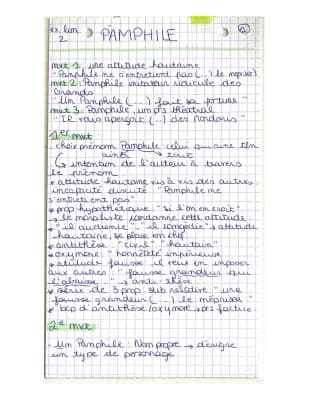 ex. lin
2
PAMPHILE
mvt 1 : une attitude hautaine
"Pamphile ne s'entretient pas (...) le méprise"
mvt 2 : Pamphile imitateur ridicule des
Grands
"Un Pamphile (...) fait sa fortune"
mvt 3 : Pamphile, un prs théâtral
"Et vous aperçoit (...) des Floridors"
1er mvt :
choix prénom Pamphile celui qui aime Un
aimer tout
intention de l'auteur à travers
le prénom
* attitude hautaine vis à vis des autres
incapacité discuté "Pamphile ne
s'entretient pas"
* prop hypothétique "si l'on en croit"
→ le moraliste condamne cette attitude
* "il audience", "il congédie" → attitude
hautaine, se place en chef.
* antithèse "civil" "hautain"
* oxymore "honnêteté impérieuse"
* attitude fausse il veut en imposer
aux autres : "fausse grandeur qui
l'abaisse" → antithèse
* série de 3 prop. sub relative "une
fausse grandeur (...) le mépriser"
* bcp d'antithèse/oxymore → prs factice.
2e mvt
- Un Pamphile : Nom propre → désigne
un type de personnage